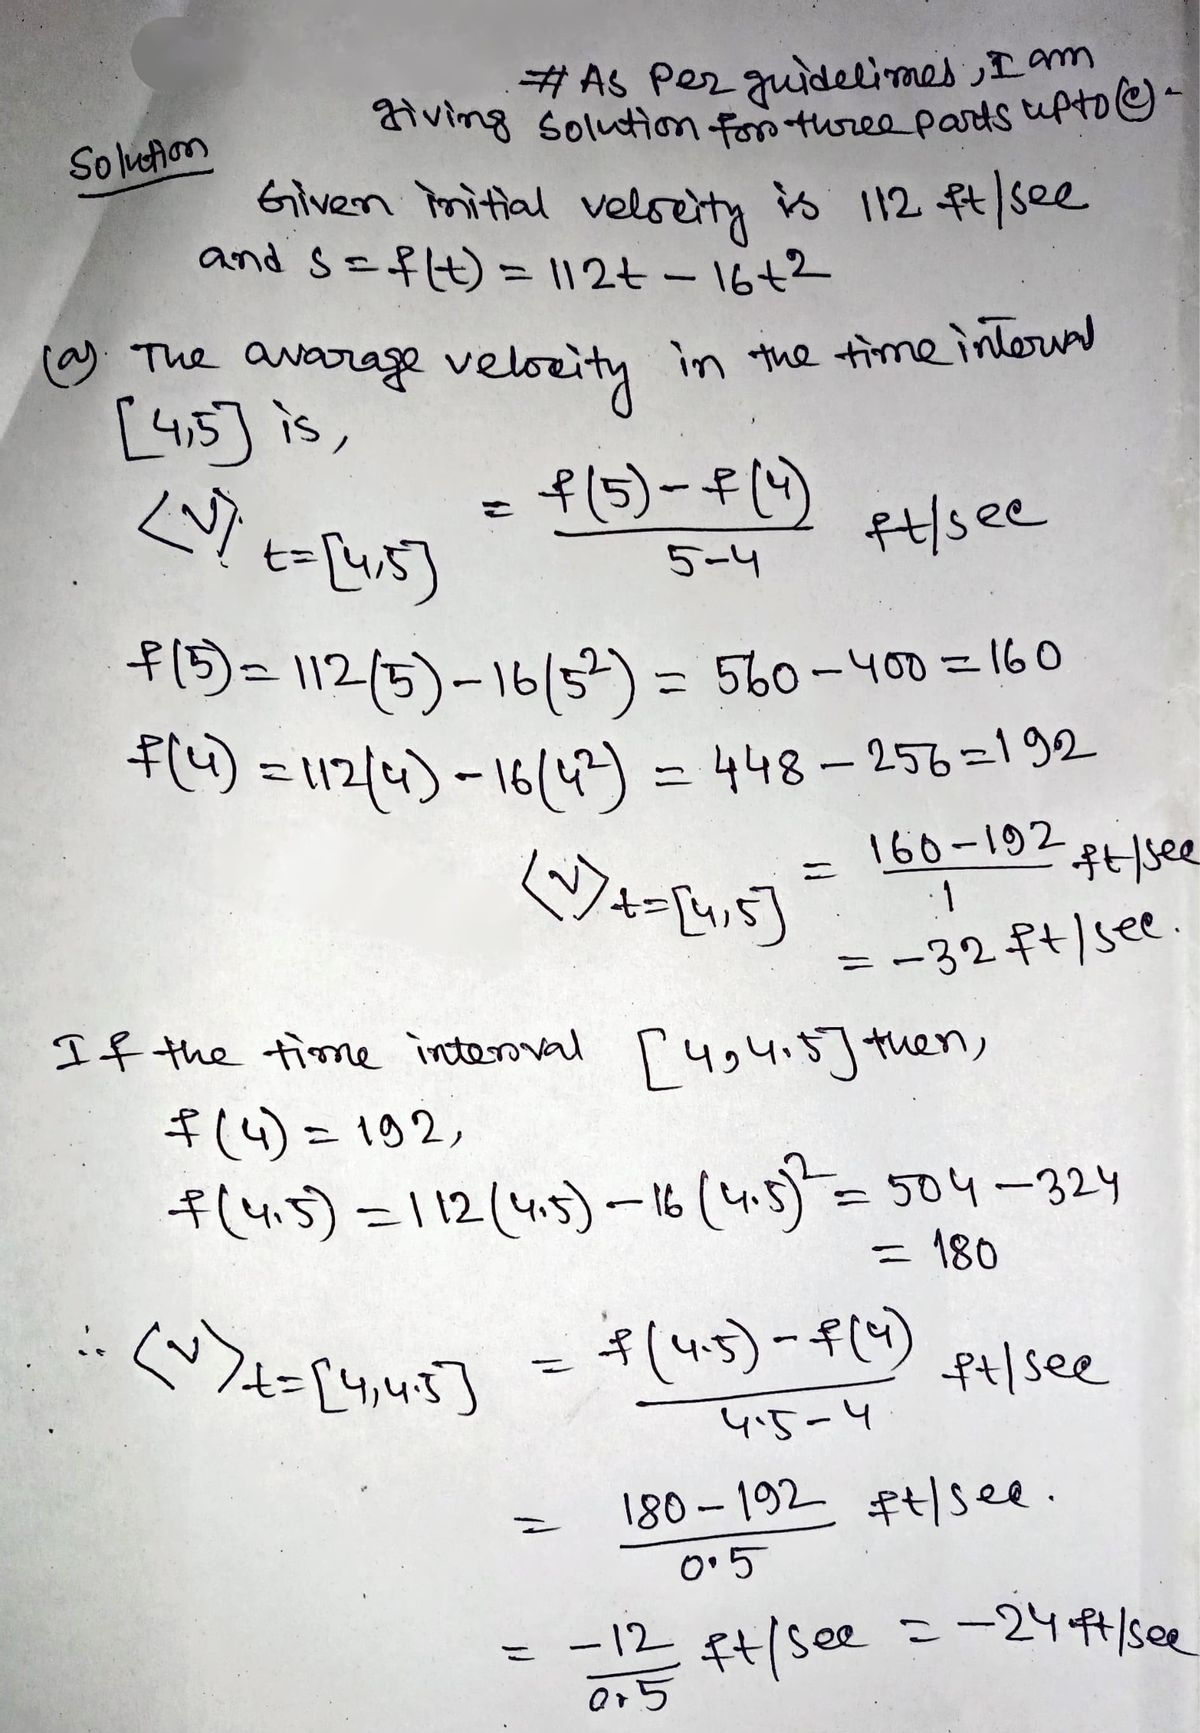 # As Per guidelines, I am
giving solution for three parts upto (c)-
Solution
Given initial velocity is 112 ft/sec
and s = f(t) = 112t - 16t2
(a). The avarage velocity in the time interval
[4,5] is,
⟨v⟩ t=[4,5] = f(5)-f(4) / 5-4 ft/sec
f(5) = 112(5) - 16(5²) = 560 - 400 = 160
f(4) = 112(4) - 16(4²) = 448 - 256 = 192
⟨v⟩ t=[4,5] = 160-192 / 1 ft/sec
= -32 ft/sec.
If the time interval [4,4.5] then,
f(4) = 192,
f(4.5) = 112(4.5) - 16(4.5)² = 504 - 324
= 180
∴ ⟨v⟩ t=[4,4.5] = f(4.5)-f(4) / 4.5-4 ft/sec
= 180-192 / 0.5 ft/sec.
= -12 / 0.5 ft/sec = -24 ft/sec